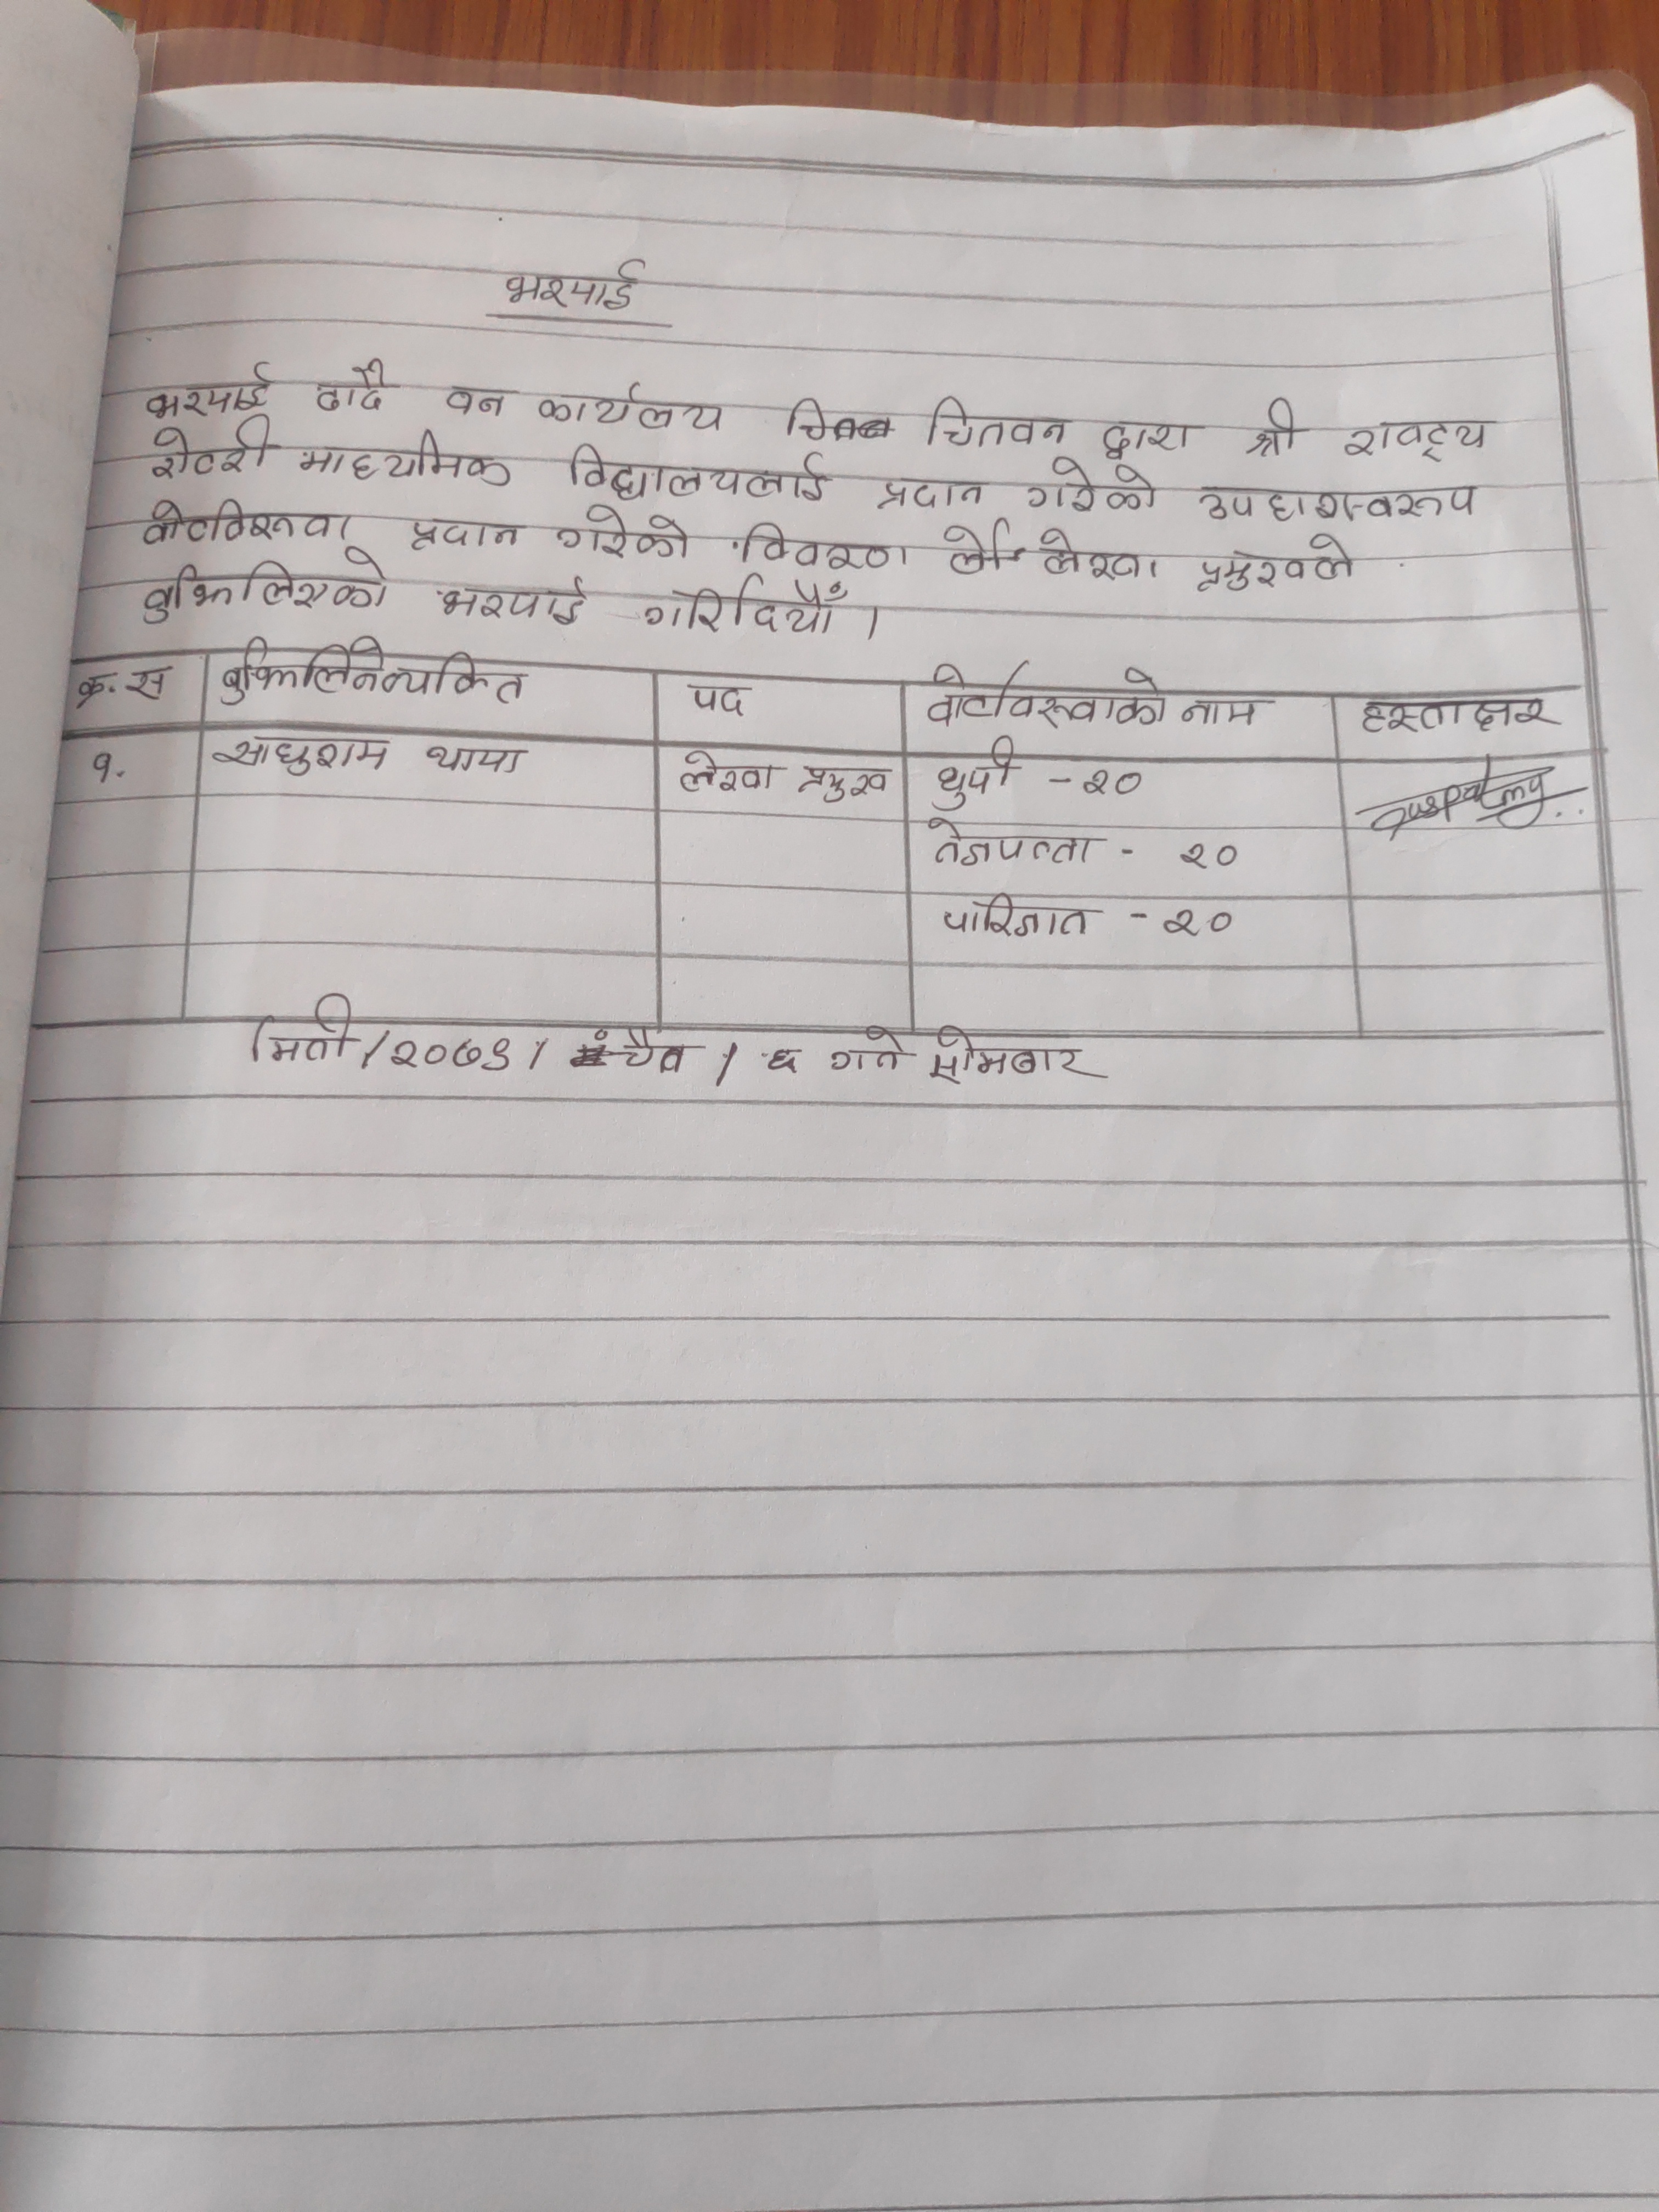 भरपाई
भरपाई ठादै वन कार्यलय चितवन द्वारा श्री रावट्रय
रोटरी माध्यमिक विद्यालयलाई प्रदान गरेको उपहारस्वरूप
वोटविरूवा प्रदान गरेको विवरण लेखा प्रमुखले
बुझिलिएको भरपाई गरिदियौँ ।
क्र.स बुझिलिनेव्यक्ति पद वोटविरूवाको नाम हस्ताक्षर
१. साधुराम थापा लेखा प्रमुख धुपी - २०
तेजपत्ता - २०
पारिजात - २०
मिती / २०७९ / चैत्र / ६ गते सोमबार